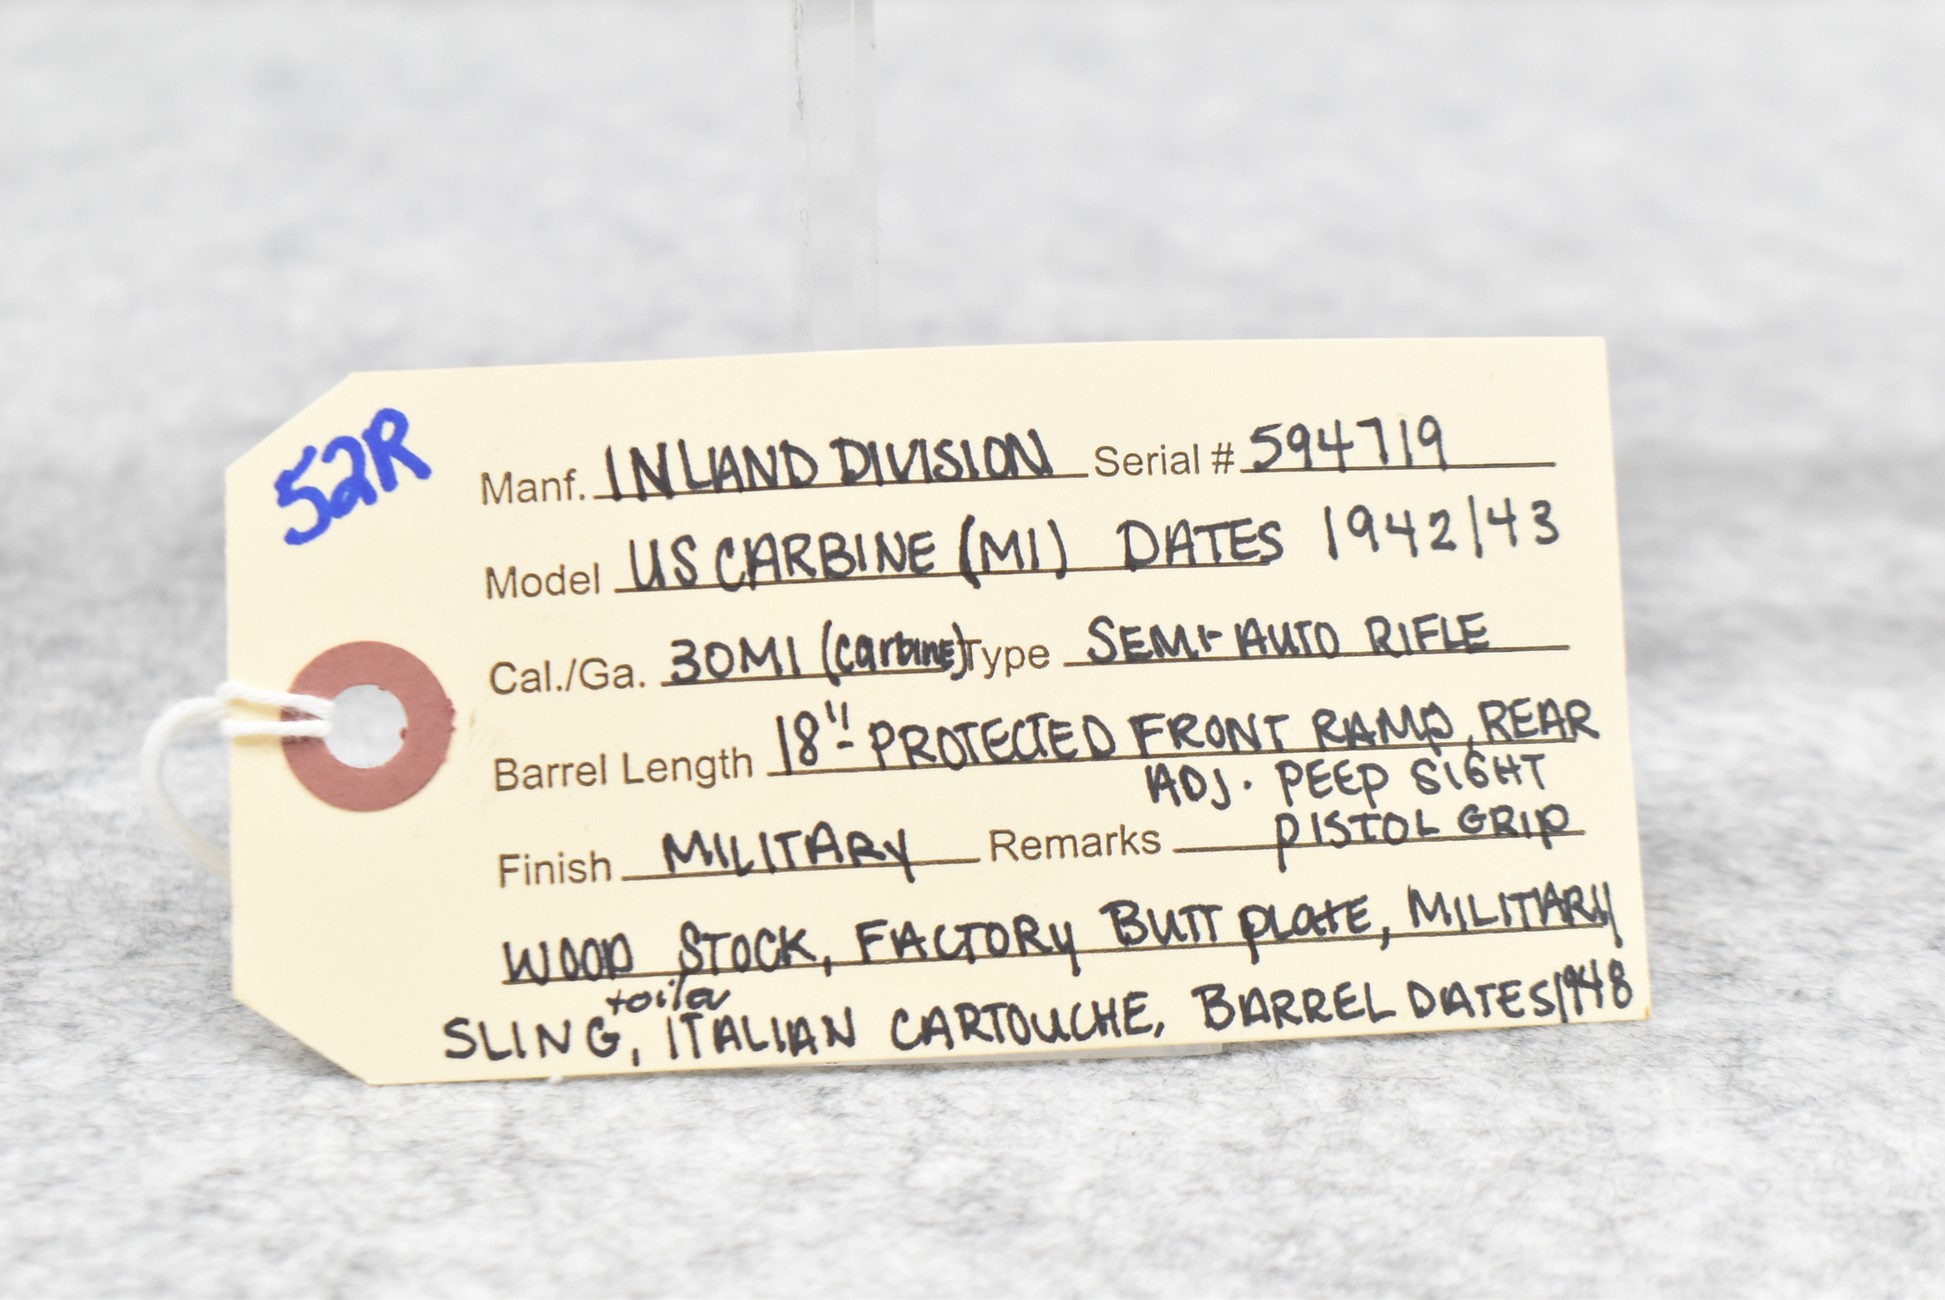 52R
Manf. INLAND DIVISION Serial # 594719
Model US CARBINE (M1) DATES 1942/43
Cal./Ga. 30M1 (carbine) Type SEMI-AUTO RIFLE
Barrel Length 18"- PROTECTED FRONT RAMP, REAR
ADJ. PEEP SIGHT
Finish MILITARY Remarks PISTOL GRIP
WOOD STOCK, FACTORY BUTT PLATE, MILITARY
toiler
SLING, ITALIAN CARTOUCHE, BARREL DATES 1948